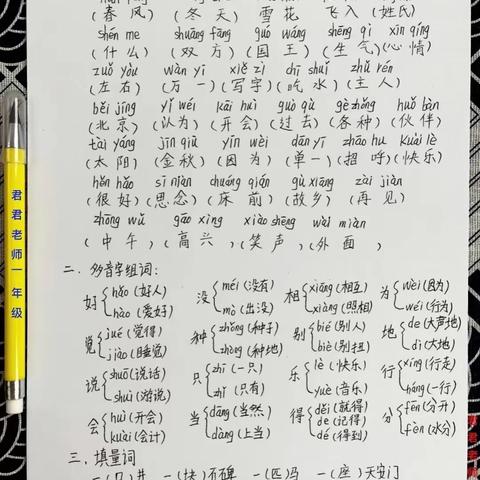 (春风) (冬天) 雪花 飞入 (姓氏)
shén me shuāng fāng guó wáng shēng qì xīn qíng
(什么) (双方) (国王) (生气) (心情)
zuǒ yòu wàn yī xiě zì chī shuǐ zhǔ rén
(左右) (万一) (写字) (吃水) (主人)
běi jīng yǐ wéi kāi huì guò qù gè zhǒng huǒ bàn
(北京) (认为) (开会) (过去) (各种) (伙伴)
tài yáng jīn qiū yīn wèi dān yī zhāo hu kuài lè
(太阳) (金秋) (因为) (单一) (招呼) (快乐)
hěn hǎo sī niàn chuáng qián gù xiāng zài jiàn
(很好) (思念) (床前) (故乡) (再见)
zhōng wǔ gāo xìng xiào shēng wài miàn
(中午) (高兴) (笑声) (外面)
二、多音字组词:
好 hǎo (好人) hào (爱好) 没 méi (没有) mò (出没) 相 xiāng (相互) xiàng (照相) 为 wèi (因为) wéi (行为)
觉 jué (觉得) jiào (睡觉) 种 zhǒng (种子) zhòng (种地) 别 bié (别人) biè (别扭) 地 de (大声地) dì (大地)
说 shuō (说话) shuì (游说) 只 zhī (一只) zhǐ (只有) 乐 lè (快乐) yuè (音乐) 行 xíng (行走) háng (一行)
会 huì (开会) kuài (会计) 当 dāng (当然) dàng (上当) 得 děi (就得) de (记得) dé (得到) 分 fēn (分开) fèn (水分)
三、填量词
一(口)井 一(块)石碑 一(匹)马 一(座)天安门
君君老师一年级